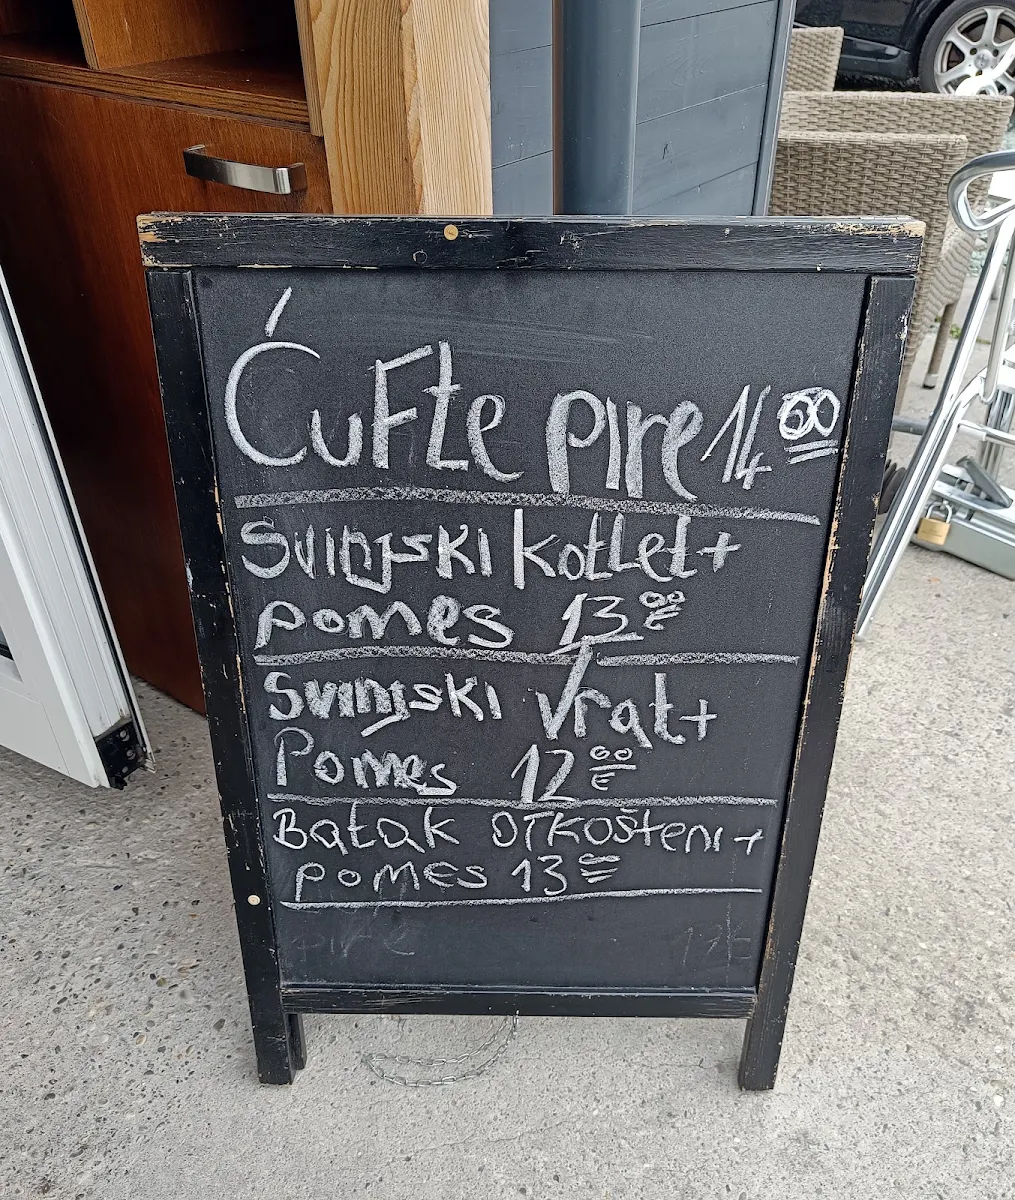 Ćufte pire 14 00
Svinjski kotlet+
pomes 13 00 €
Svinjski vrat+
Pomes 12 00 €
Batak otkošteni+
pomes 13 00
pire